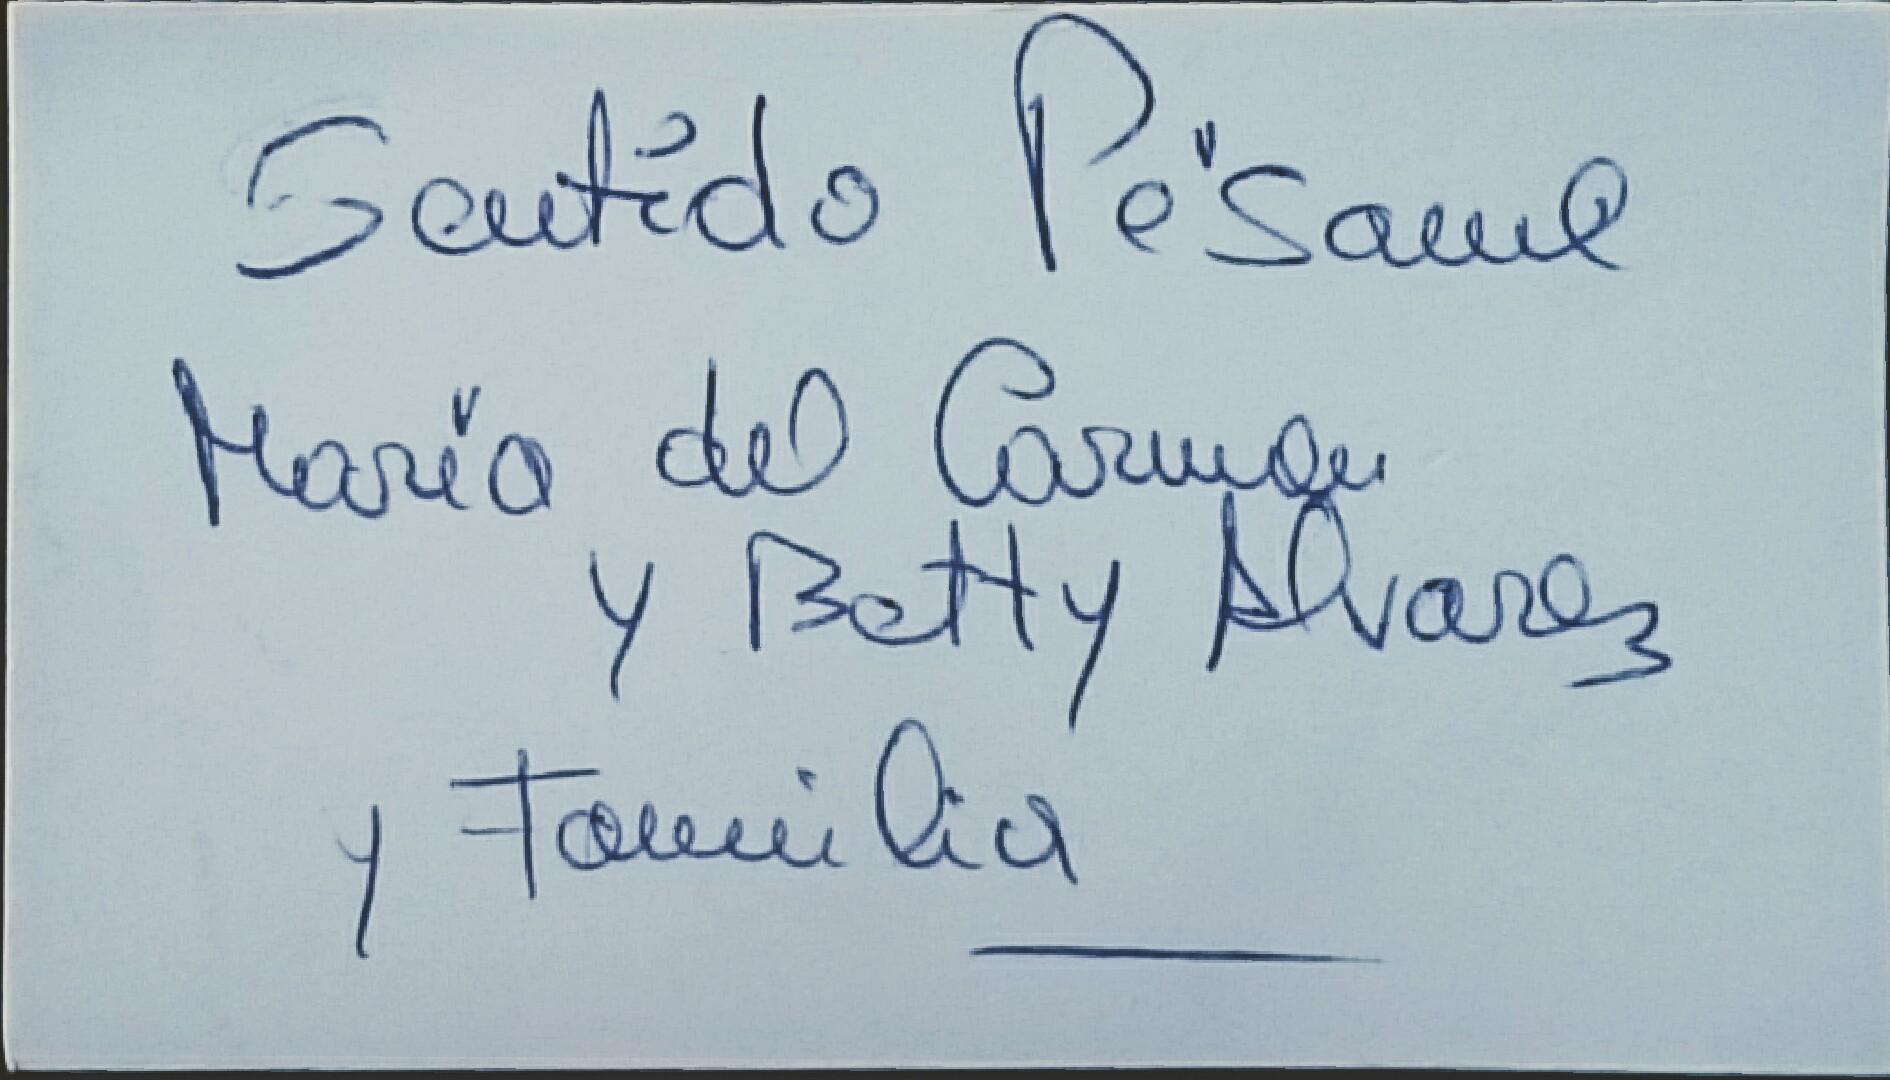 Sentido Pésame
María del Carmen
y Betty Alvarez
y Familia